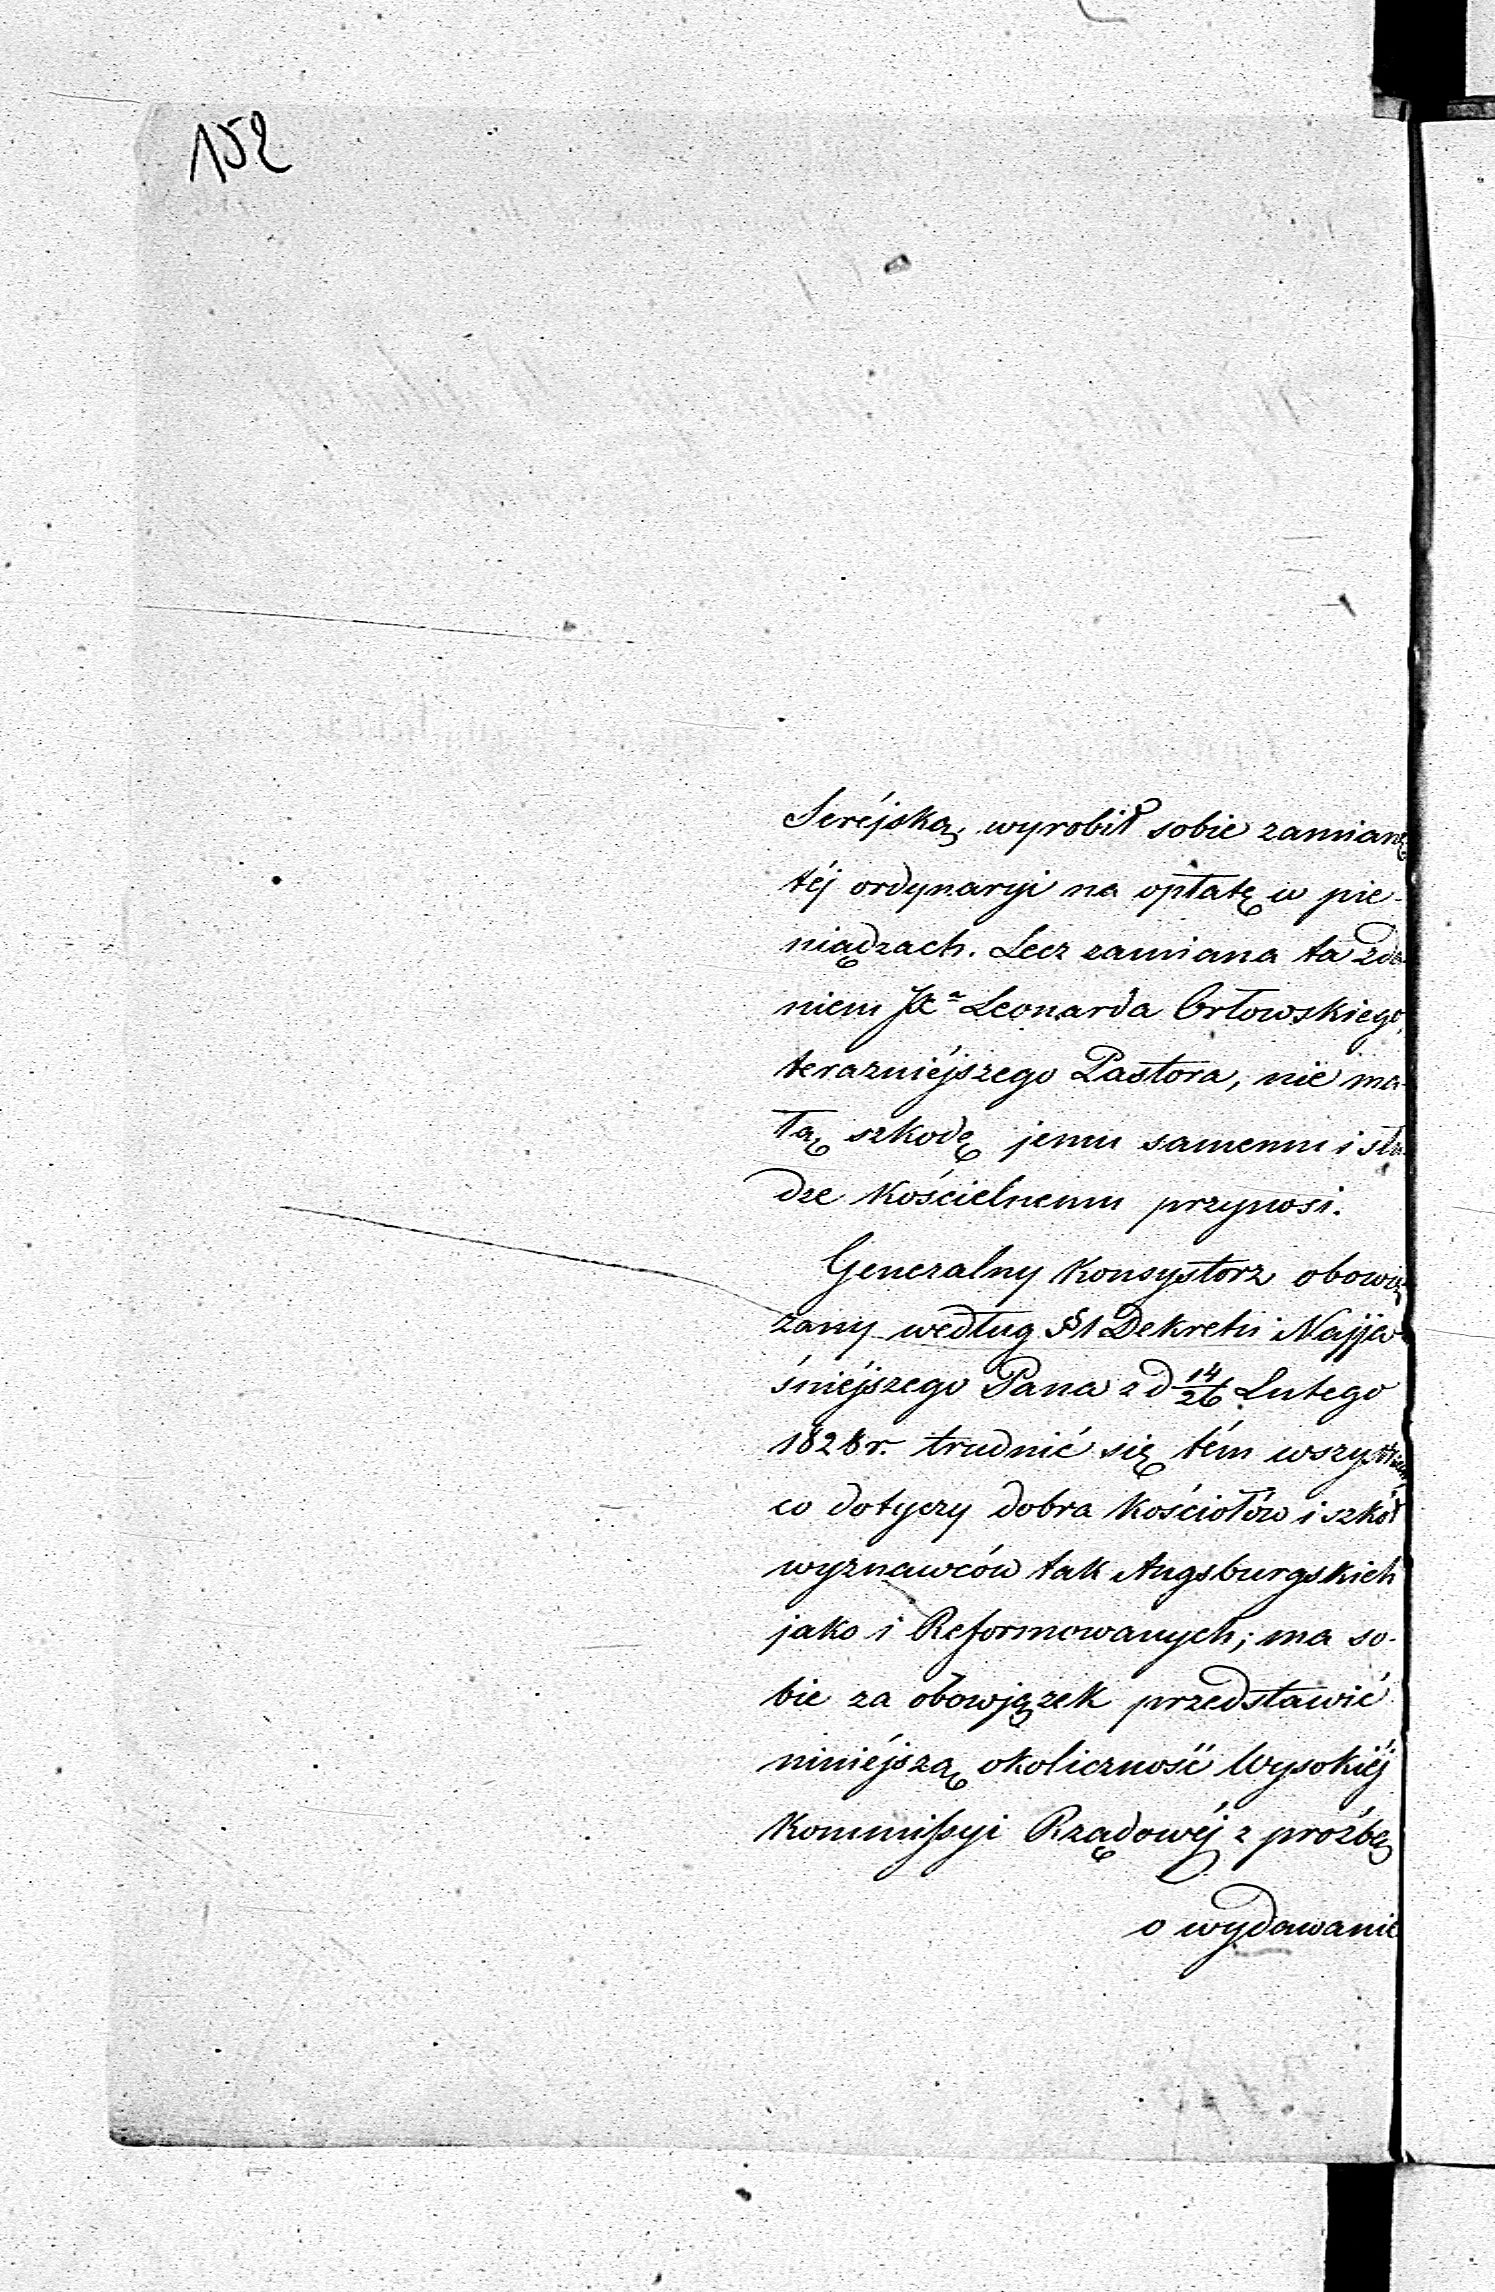 152
Seréjską, wyrobił sobie zamianę
téj ordynaryi na opłatę w pie-
niądzach. Lecz zamiana ta zda-
niem Leonarda Orłowskiego,
teraźniéjszego Pastora, nie ma-
łą szkodę jemu samemu i słu-
dze kościelnemu przynosi.
Generalny Konsystorz obowią-
zany według §1 Dekretu Najja-
śniéjszego Pana z d 14/26 Lutego
1828 r. trudnić się tém wszystkiem
co dotyczy dobra kościołów i szkół
wyznawców tak Augsburgskich
jako i Reformowanych; ma so-
bie za obowiązek przedstawić
niniéjszą okoliczność Wysokiéj
Kommissyi Rządowéj z prośbą
o wydawanie